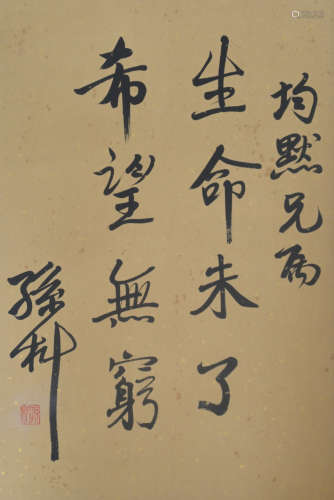 均默兄
生命未了
希望無窮
孫科